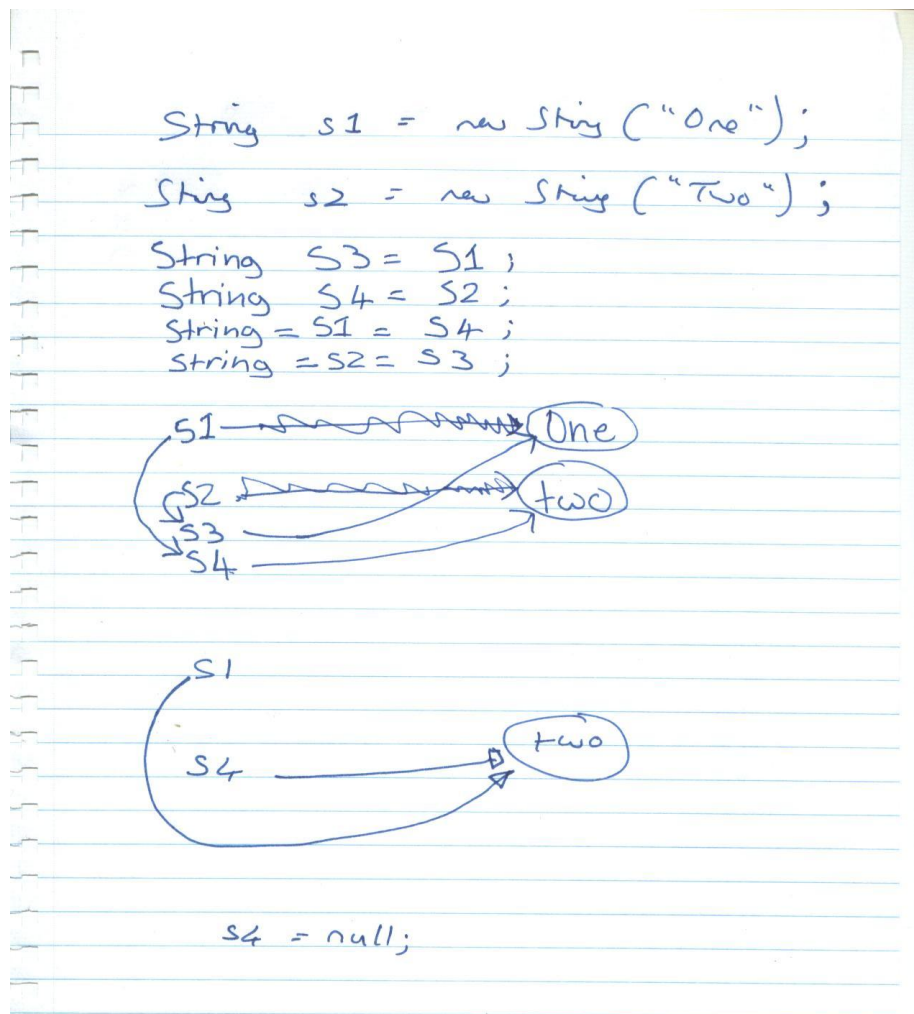 String s1 = new String ("One");
String s2 = new String ("Two");
String S3 = S1 ;
String S4 = S2 ;
String = S1 = S4 ;
String = S2 = S3 ;
S1 One
S2 two
S3
S4
S1
two
S4
s4 = null;